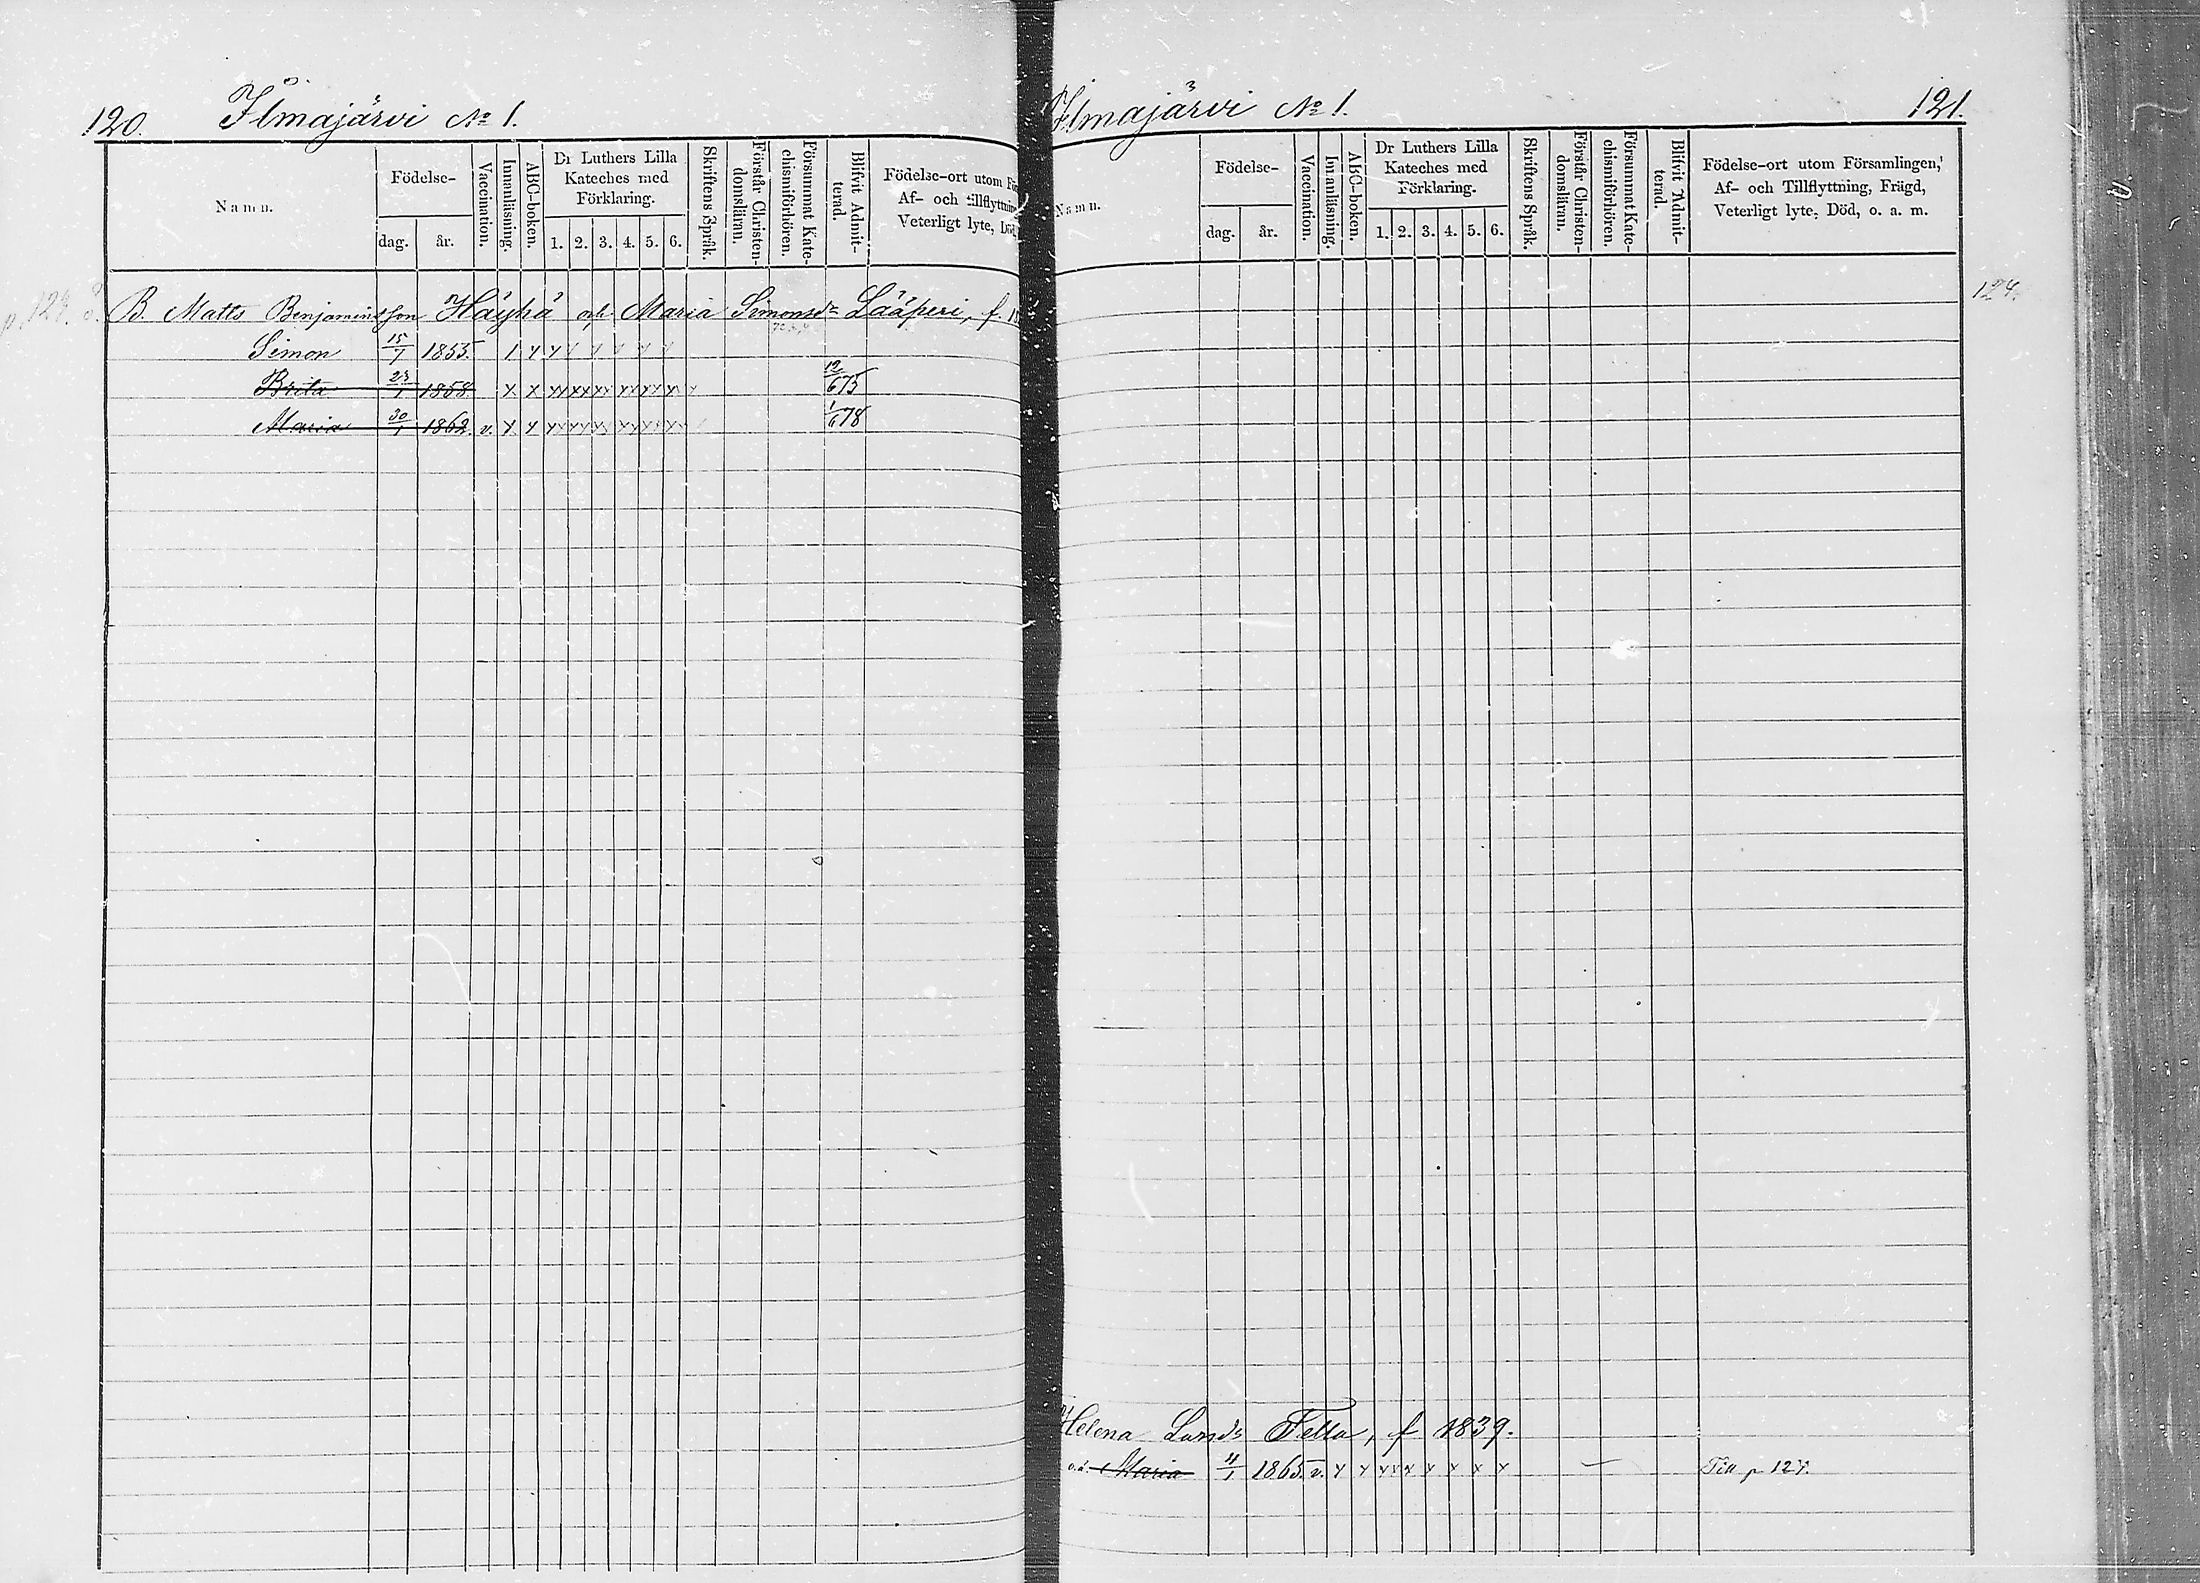 120. Ilmajärvi № 1.
Namn. Födelse- dag. år. Vaccination. Innanläsning. ABC-boken. Dr Luthers Lilla Kateches med Förklaring. 1. 2. 3. 4. 5. 6. Skriftens Språk. Förstår Christendomsläran. Försummat Katechismiförhören. Blifvit Admitterad. Födelse-ort utom För Af- och tillflyttning Veterligt lyte, Död,
B. Matts Benjaminsson Häyhä och Maria Simonsdr Lääperi, f.
Simon 15/1 1855.
Brita 1858. x x xx xx xx xx xx x 12/6 75
Maria 30/1 1862. v. x x xx xx xx xx xx x 1/6 78
Ilmajärvi № 1. 121.
Namn. Födelse- dag. år. Vaccination. Innanläsning. ABC-boken. Dr Luthers Lilla Kateches med Förklaring. 1. 2. 3. 4. 5. 6. Skriftens Språk. Förstår Christendomsläran. Försummat Katechismiförhören. Blifvit Admitterad. Födelse-ort utom Församlingen, Af- och Tillflyttning, Frägd, Veterligt lyte, Död, o. a. m.
124.
Helena Larsdr Tella, f 1839.
o.ä. Maria 4/1 1865. v. x x xx x x x x x — Till p 127.